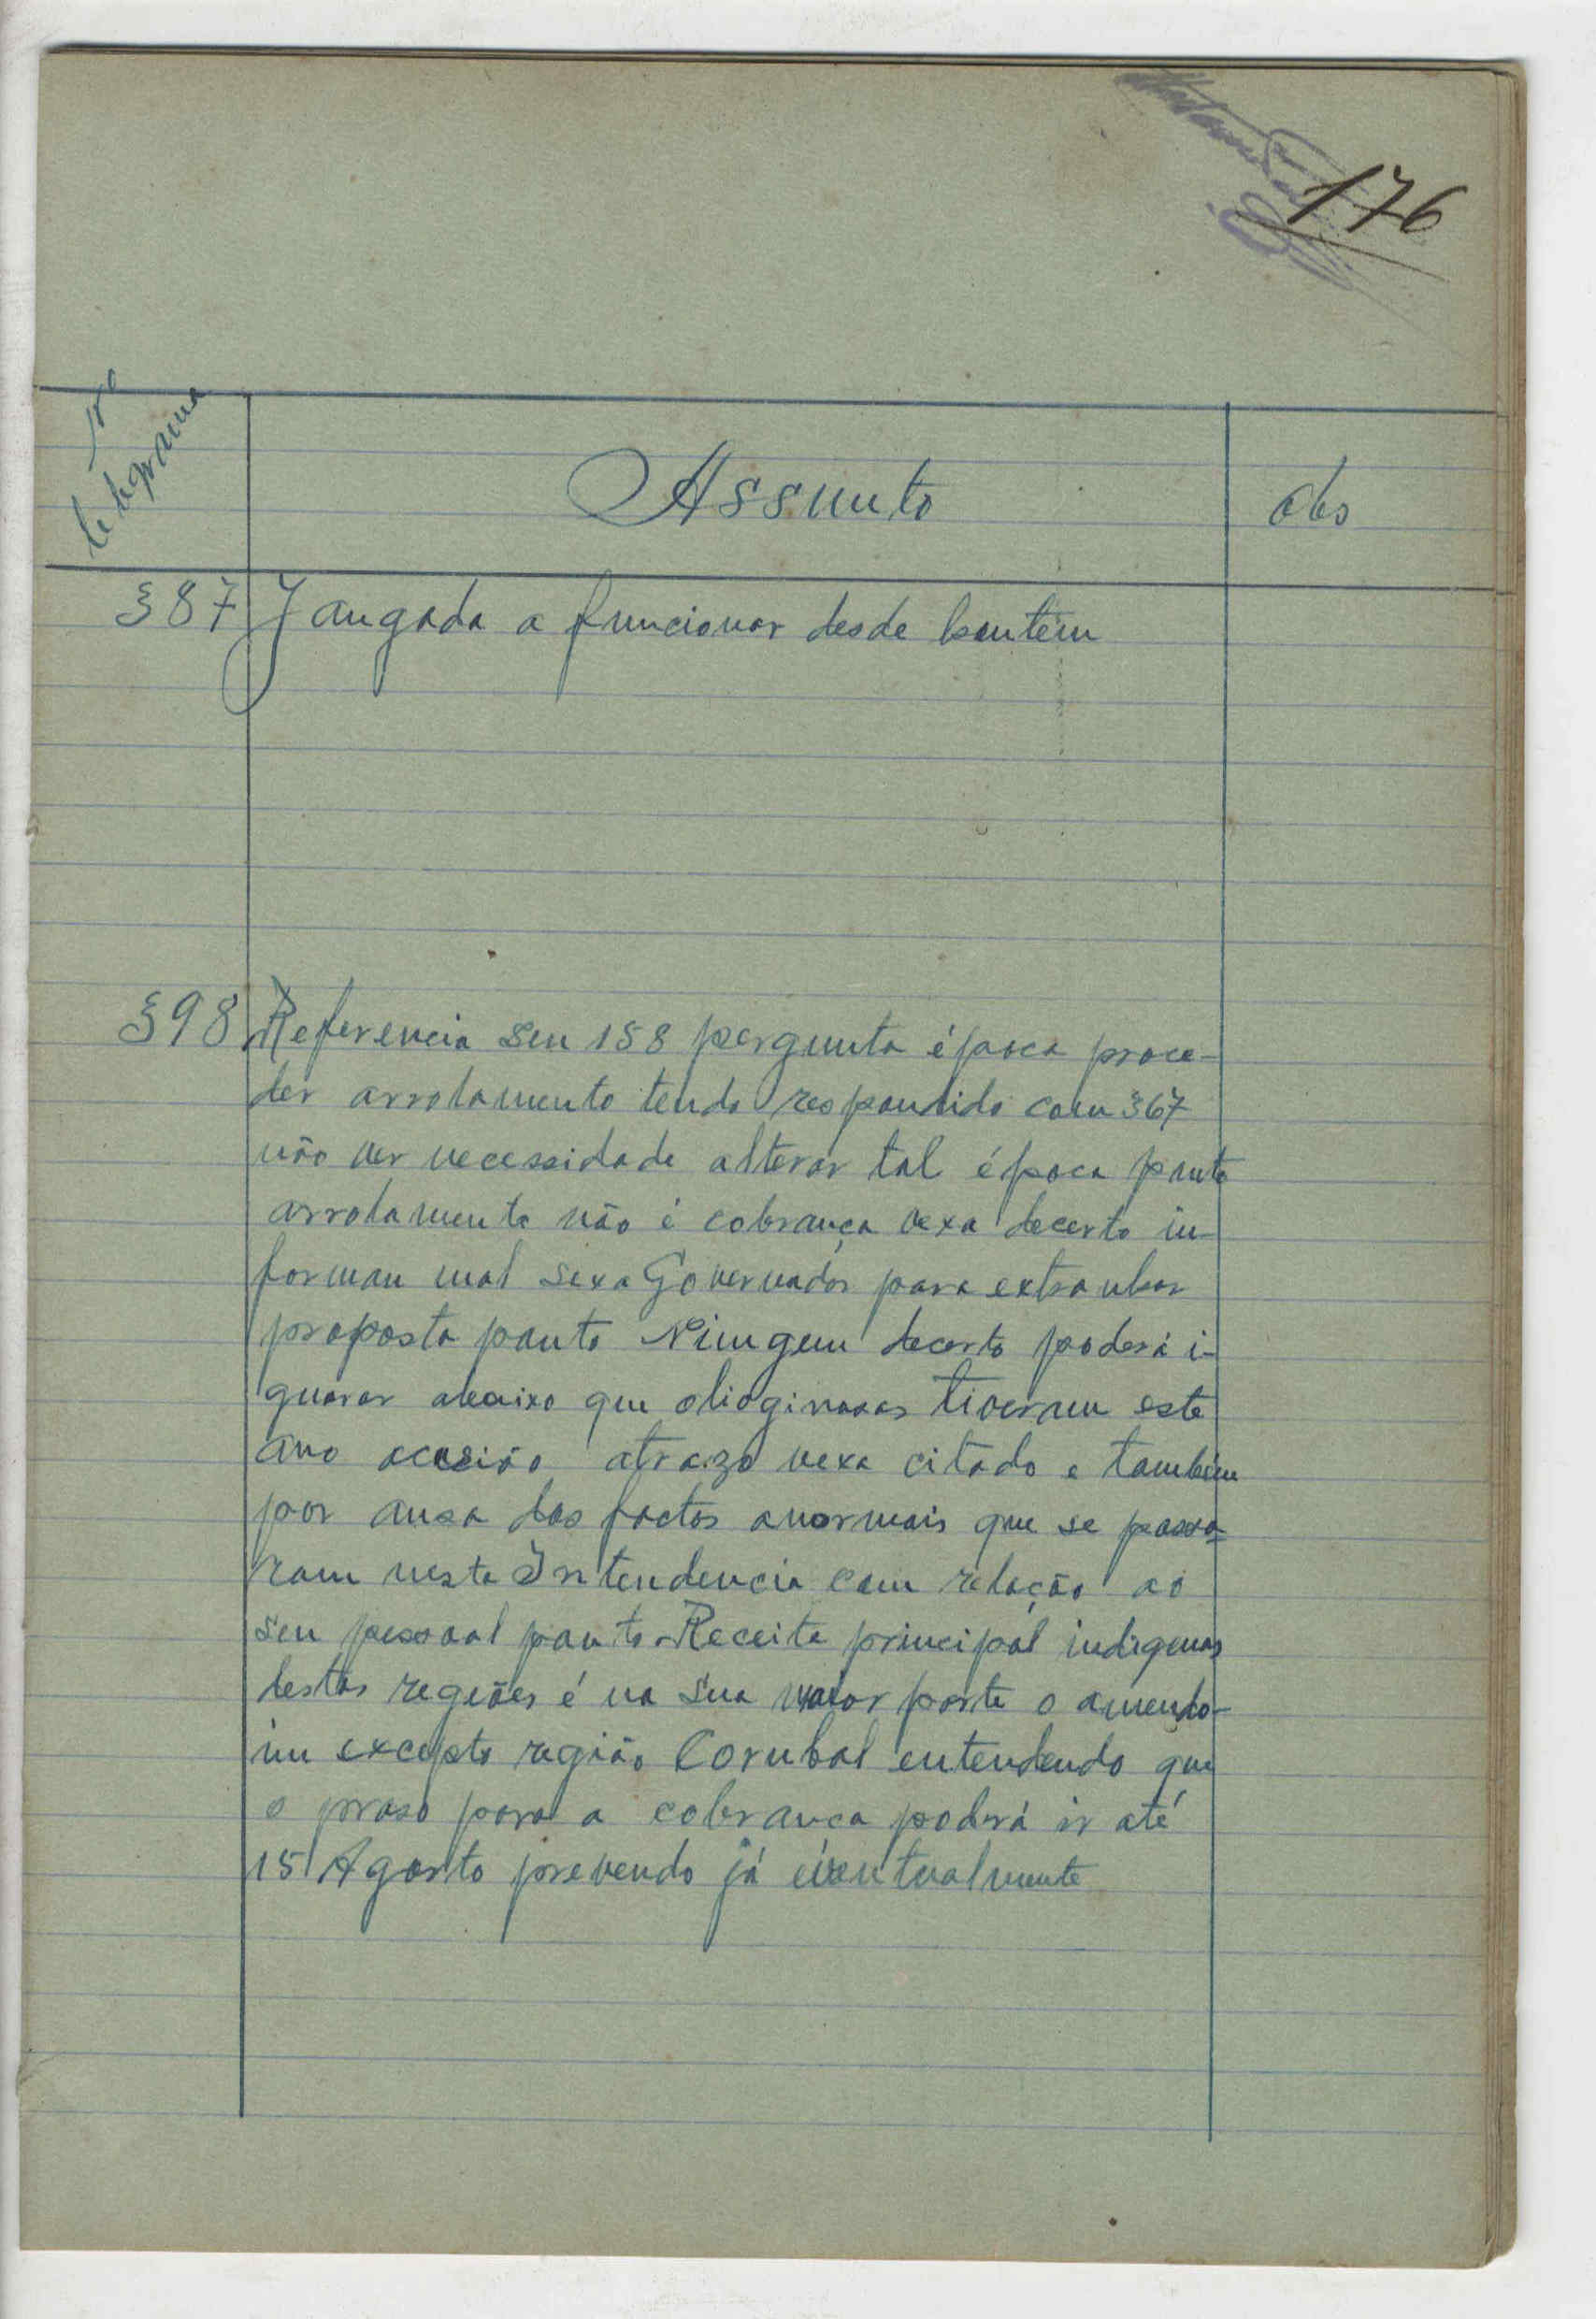 176
Nº
telegrama
Assunto
obs
387 Jangada a funcionar desde hontem
398 Referencia seu 158 pergunta época proce-
der arrolamento tendo respondido com 367
não ver necessidade alterar tal época ponto
arrolamento não é cobrança vexa decerto in-
formou mal sexa Governador para extranhar
proposta ponto Ningem decerto poderá i-
gnorar abaixo que olioginosas tiveram este
ano atrazo vexa citado e também
por ausa dos factos anormais que se passa-
ram nesta Intendencia com relação ao
seu pessoal ponto Receita principal indigenas
destas regiões é na sua maior parte o amendo-
im excepto região Corubal entendendo que
o praso para a cobrança poderá ir até
15 Agosto prevendo já eventualmente